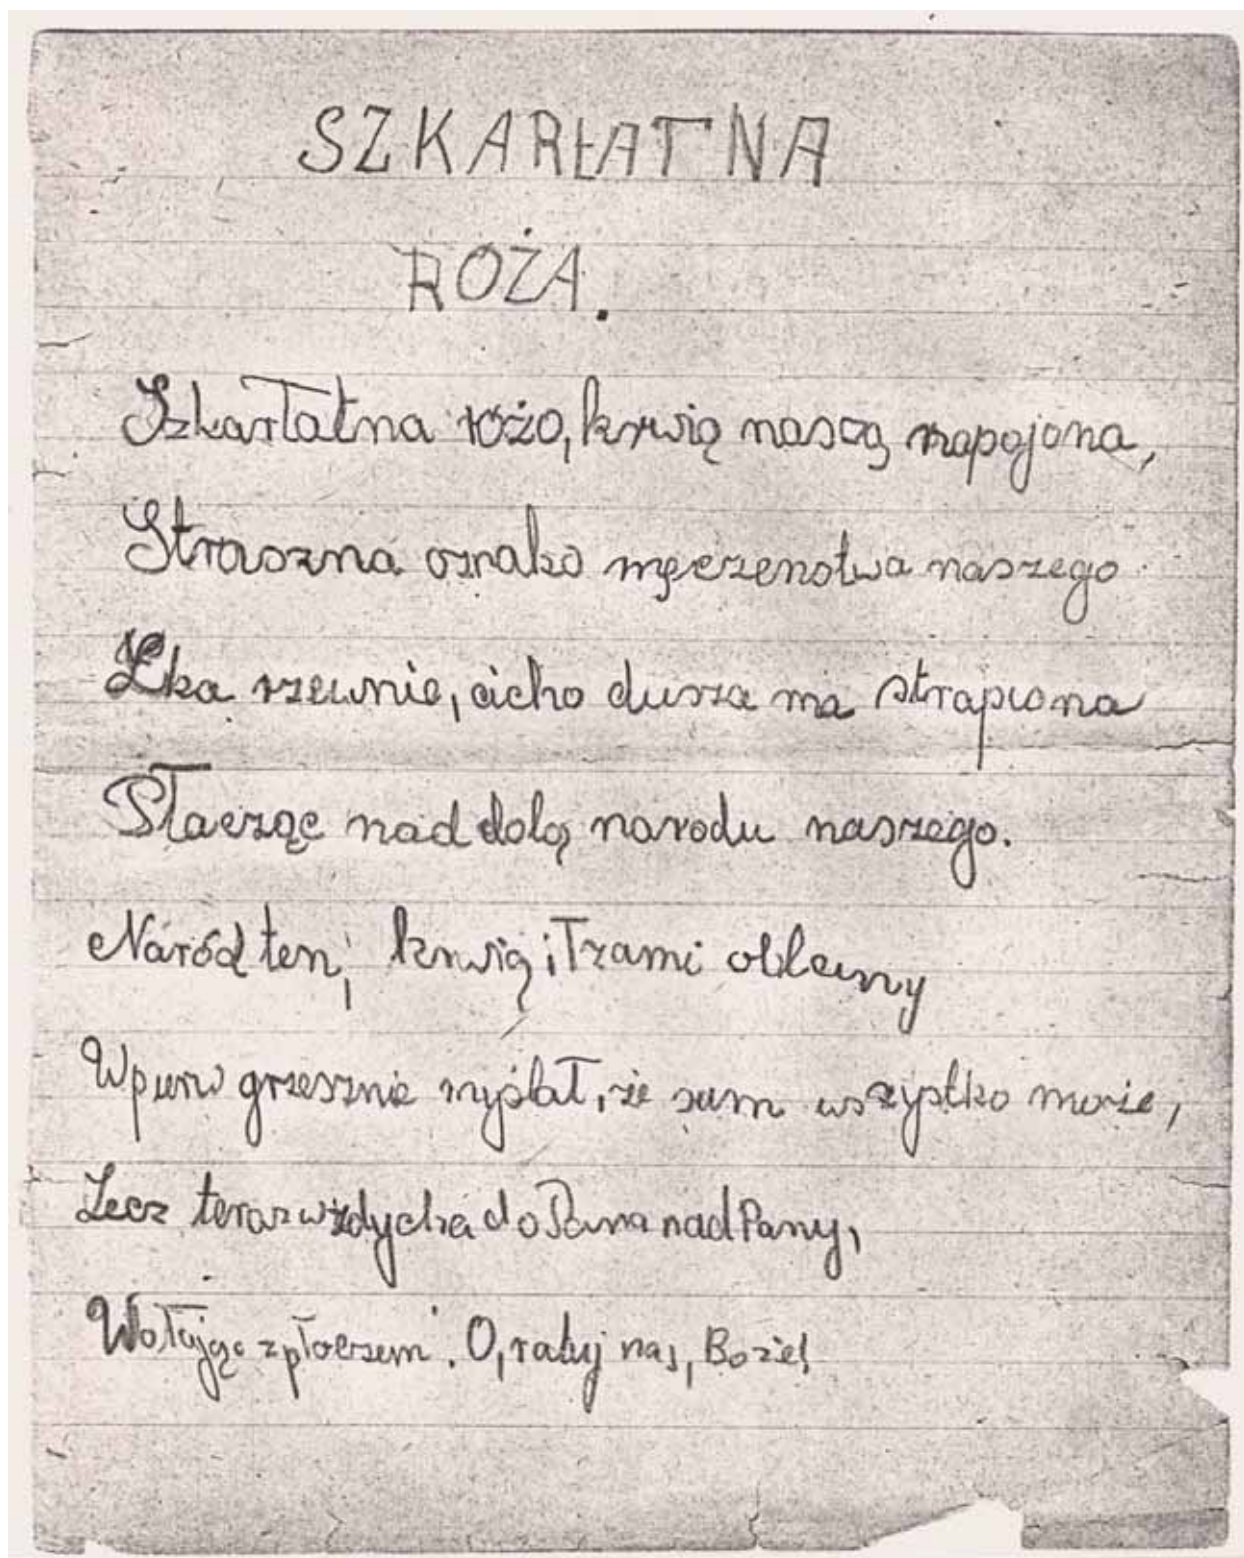 SZKARŁATNA
RÓŻA.
Szkarłatna różo, krwią naszą napojona,
Straszna oznako męczeństwa naszego
Łka rzewnie, cicho dusza ma strapiona
Płacząc nad dolą narodu naszego.
Naród ten, krwią i łzami oblany
Wpierw grzesznie myślał, że sam wszystko może,
Lecz teraz wzdycha do Pana nad Pany,
Wołając z płaczem: O, ratuj nas, Boże!